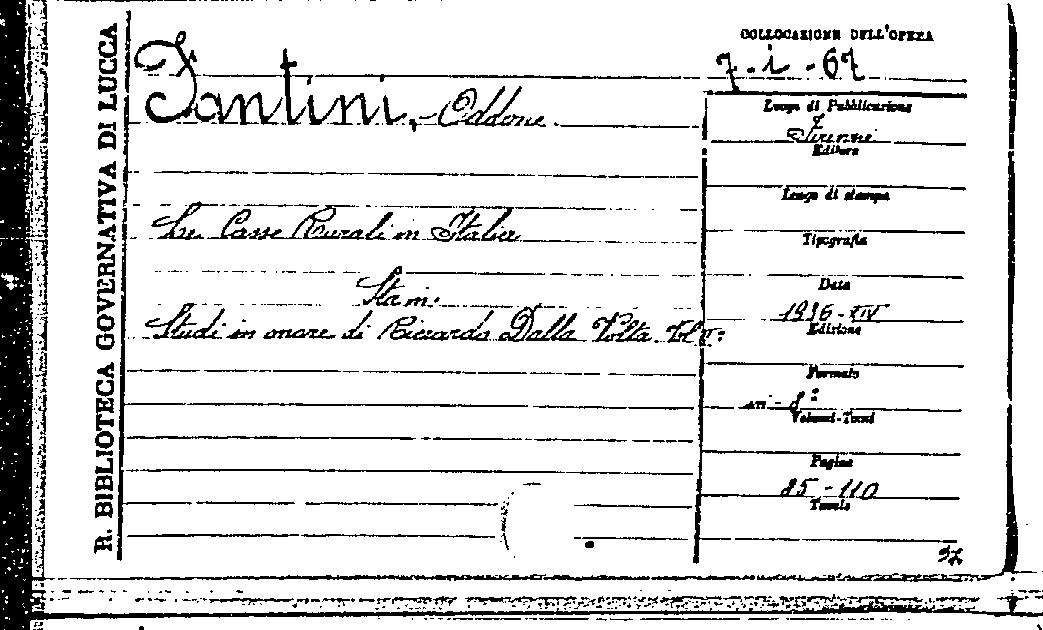 R. BIBLIOTECA GOVERNATIVA DI LUCCA
Fantini, Oddone
Le Casse Rurali in Italia
Sta in:
Studi in onore di Riccardo Dalla Volta. Vol II:
COLLOCAZIONE DELL'OPERA
7. i. -67
Luogo di Pubblicazione
Firenze
Editore
Luogo di stampa
Tipografia
Data
1936-XIV
Edizione
Formato
in-8º
Volumi-Tomi
Pagine
85-110
Tavole